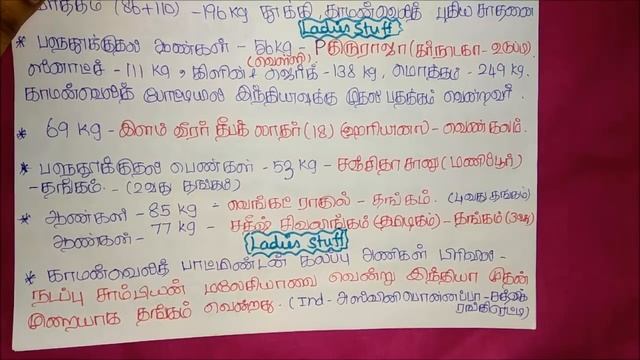 மொத்தம் (86+110) - 196 kg தூக்கி காமன்வெல்த் புதிய சாதனை
Ladies Stuff
* பளுதூக்குதல் ஆண்கள் - 56 kg - P குருராஜா (கர்நாடகா - உடுப்பி)
(வெள்ளி)
ஸ்னாட்ச் - 111 kg, கிளீன் & ஜெர்க் - 138 kg, மொத்தம் - 249 kg.
காமன்வெல்த் போட்டியில் இந்தியாவுக்கு முதல் பதக்கம் வென்றவர்.
* 69 kg - இளம் வீரர் தீபக் லாதர் (18) (ஹரியானா) - வெண்கலம்.
* பளுதூக்குதல் பெண்கள் - 53 kg - சஞ்சிதா சானு (மணிப்பூர்)
- தங்கம். - (2வது தங்கம்)
* ஆண்கள் - 85 kg - வெங்கட் ராகுல் - தங்கம். (4வது தங்கம்)
ஆண்கள் - 77 kg - சதீஷ் சிவலிங்கம் (தமிழகம்) - தங்கம் (3வது)
Ladies Stuff
* காமன்வெல்த் பாட்மிண்டன் கலப்பு அணிகள் பிரிவு -
நடப்பு சாம்பியன் மலேசியாவை வென்று இந்தியா முதன்
முறையாக தங்கம் வென்றது. (Ind - அஸ்வினி பொன்னப்பா - சாத்விக்
ரங்கிரெட்டி)